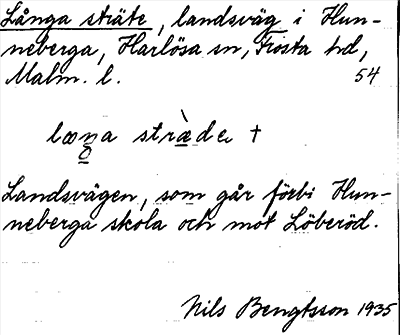 Långa sträte, landsväg i Hun-
neberga, Harlösa sn, Frosta hd,
Malm. l. 54
stràde +
Landsvägen, som går förbi Hun-
neberga skola och mot Löberöd.
Nils Bengtsson 1935